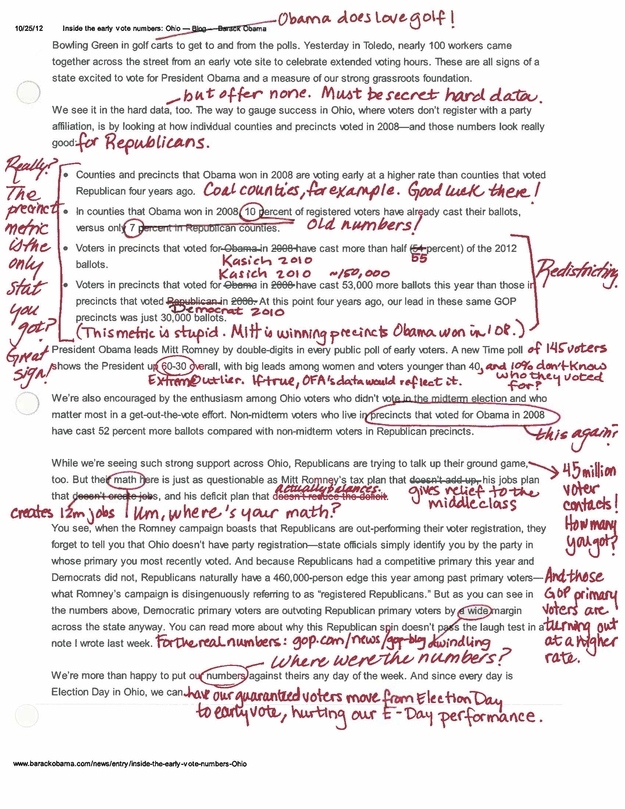 Obama does love golf!
10/25/12 Inside the early vote numbers: Ohio — Blog — Barack Obama
Bowling Green in golf carts to get to and from the polls. Yesterday in Toledo, nearly 100 workers came
together across the street from an early vote site to celebrate extended voting hours. These are all signs of a
state excited to vote for President Obama and a measure of our strong grassroots foundation.
but offer none. Must be secret hard data.
We see it in the hard data, too. The way to gauge success in Ohio, where voters don't register with a party
affiliation, is by looking at how individual counties and precincts voted in 2008—and those numbers look really
good: for Republicans.
Really? The precinct metric is the only stat you got? Great sign!
• Counties and precincts that Obama won in 2008 are voting early at a higher rate than counties that voted
Republican four years ago. Coal counties, for example. Good luck there!
• In counties that Obama won in 2008, 10 percent of registered voters have already cast their ballots,
versus only 7 percent in Republican counties. Old numbers!
• Voters in precincts that voted for Obama in 2008 have cast more than half (54 percent) of the 2012
ballots. Kasich 2010 55
Kasich 2010 ~150,000
Redistricting.
• Voters in precincts that voted for Obama in 2008 have cast 53,000 more ballots this year than those in
precincts that voted Republican in 2008. At this point four years ago, our lead in these same GOP
Democrat 2010
precincts was just 30,000 ballots.
(This metric is stupid. Mitt is winning precincts Obama won in '08.)
President Obama leads Mitt Romney by double-digits in every public poll of early voters. A new Time poll of 145 voters
shows the President up 60-30 overall, with big leads among women and voters younger than 40, and 10% don't know
who they voted for?
Extreme outlier. If true, OFA's data would reflect it.
We're also encouraged by the enthusiasm among Ohio voters who didn't vote in the midterm election and who
matter most in a get-out-the-vote effort. Non-midterm voters who live in precincts that voted for Obama in 2008
have cast 52 percent more ballots compared with non-midterm voters in Republican precincts.
this again?
While we're seeing such strong support across Ohio, Republicans are trying to talk up their ground game,
4.5 million voter contacts! How many you got?
too. But their math here is just as questionable as Mitt Romney's tax plan that doesn't add up, his jobs plan
actually balances.
that doesn't create jobs, and his deficit plan that doesn't reduce the deficit. gives relief to the
middle class
creates 12m jobs Um, where's your math?
You see, when the Romney campaign boasts that Republicans are out-performing their voter registration, they
forget to tell you that Ohio doesn't have party registration—state officials simply identify you by the party in
whose primary you most recently voted. And because Republicans had a competitive primary this year and
Democrats did not, Republicans naturally have a 460,000-person edge this year among past primary voters—
And those GOP primary voters are turning out at a higher rate.
what Romney's campaign is disingenuously referring to as "registered Republicans." But as you can see in
the numbers above, Democratic primary voters are outvoting Republican primary voters by a wide margin
across the state anyway. You can read more about why this Republican spin doesn't pass the laugh test in a
note I wrote last week. For the real numbers: gop.com/news/gop-blog dwindling
Where were the numbers?
We're more than happy to put our numbers against theirs any day of the week. And since every day is
Election Day in Ohio, we can have our guaranteed voters move from Election Day
to early vote, hurting our E-Day performance.
www.barackobama.com/news/entry/inside-the-early-vote-numbers-Ohio